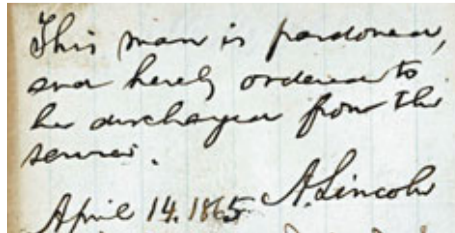 This man is pardoned,
and hereby ordered to
be discharged from the
service.
A. Lincoln
April 14. 1865